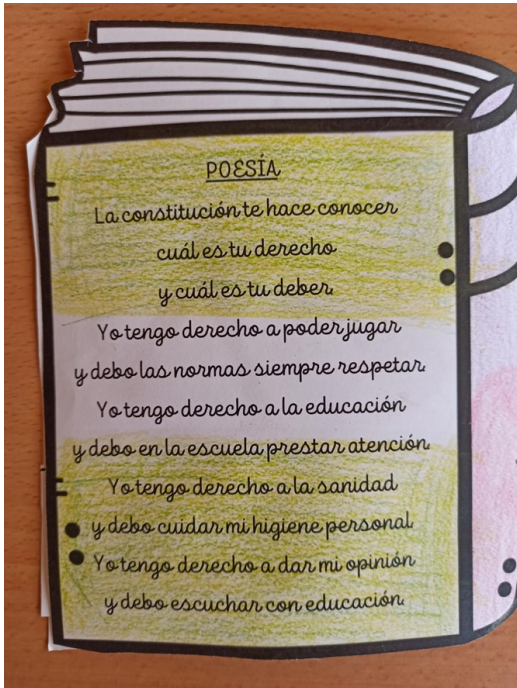 POESÍA
La constitución te hace conocer
cuál es tu derecho
y cuál es tu deber.
Yo tengo derecho a poder jugar
y debo las normas siempre respetar.
Yo tengo derecho a la educación
y debo en la escuela prestar atención.
Yo tengo derecho a la sanidad
y debo cuidar mi higiene personal.
Yo tengo derecho a dar mi opinión
y debo escuchar con educación.